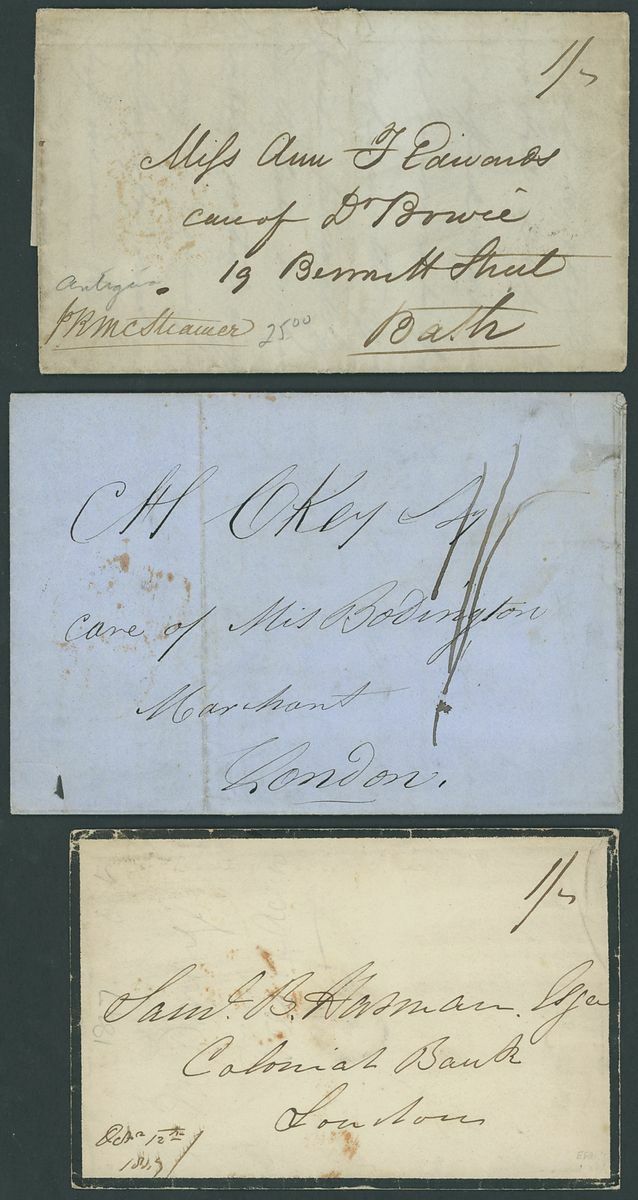 1/-
Miss Ann F Edwards
care of Dr Bowie
19 Bennett Street
Bath
Antigua
pr RM Steamer
2500
CH OKey
care of Mis Bodington
Marchant
London.
1/-
Saml. B. Harman. Esqe
Colonial Bank
London
Octr 12th